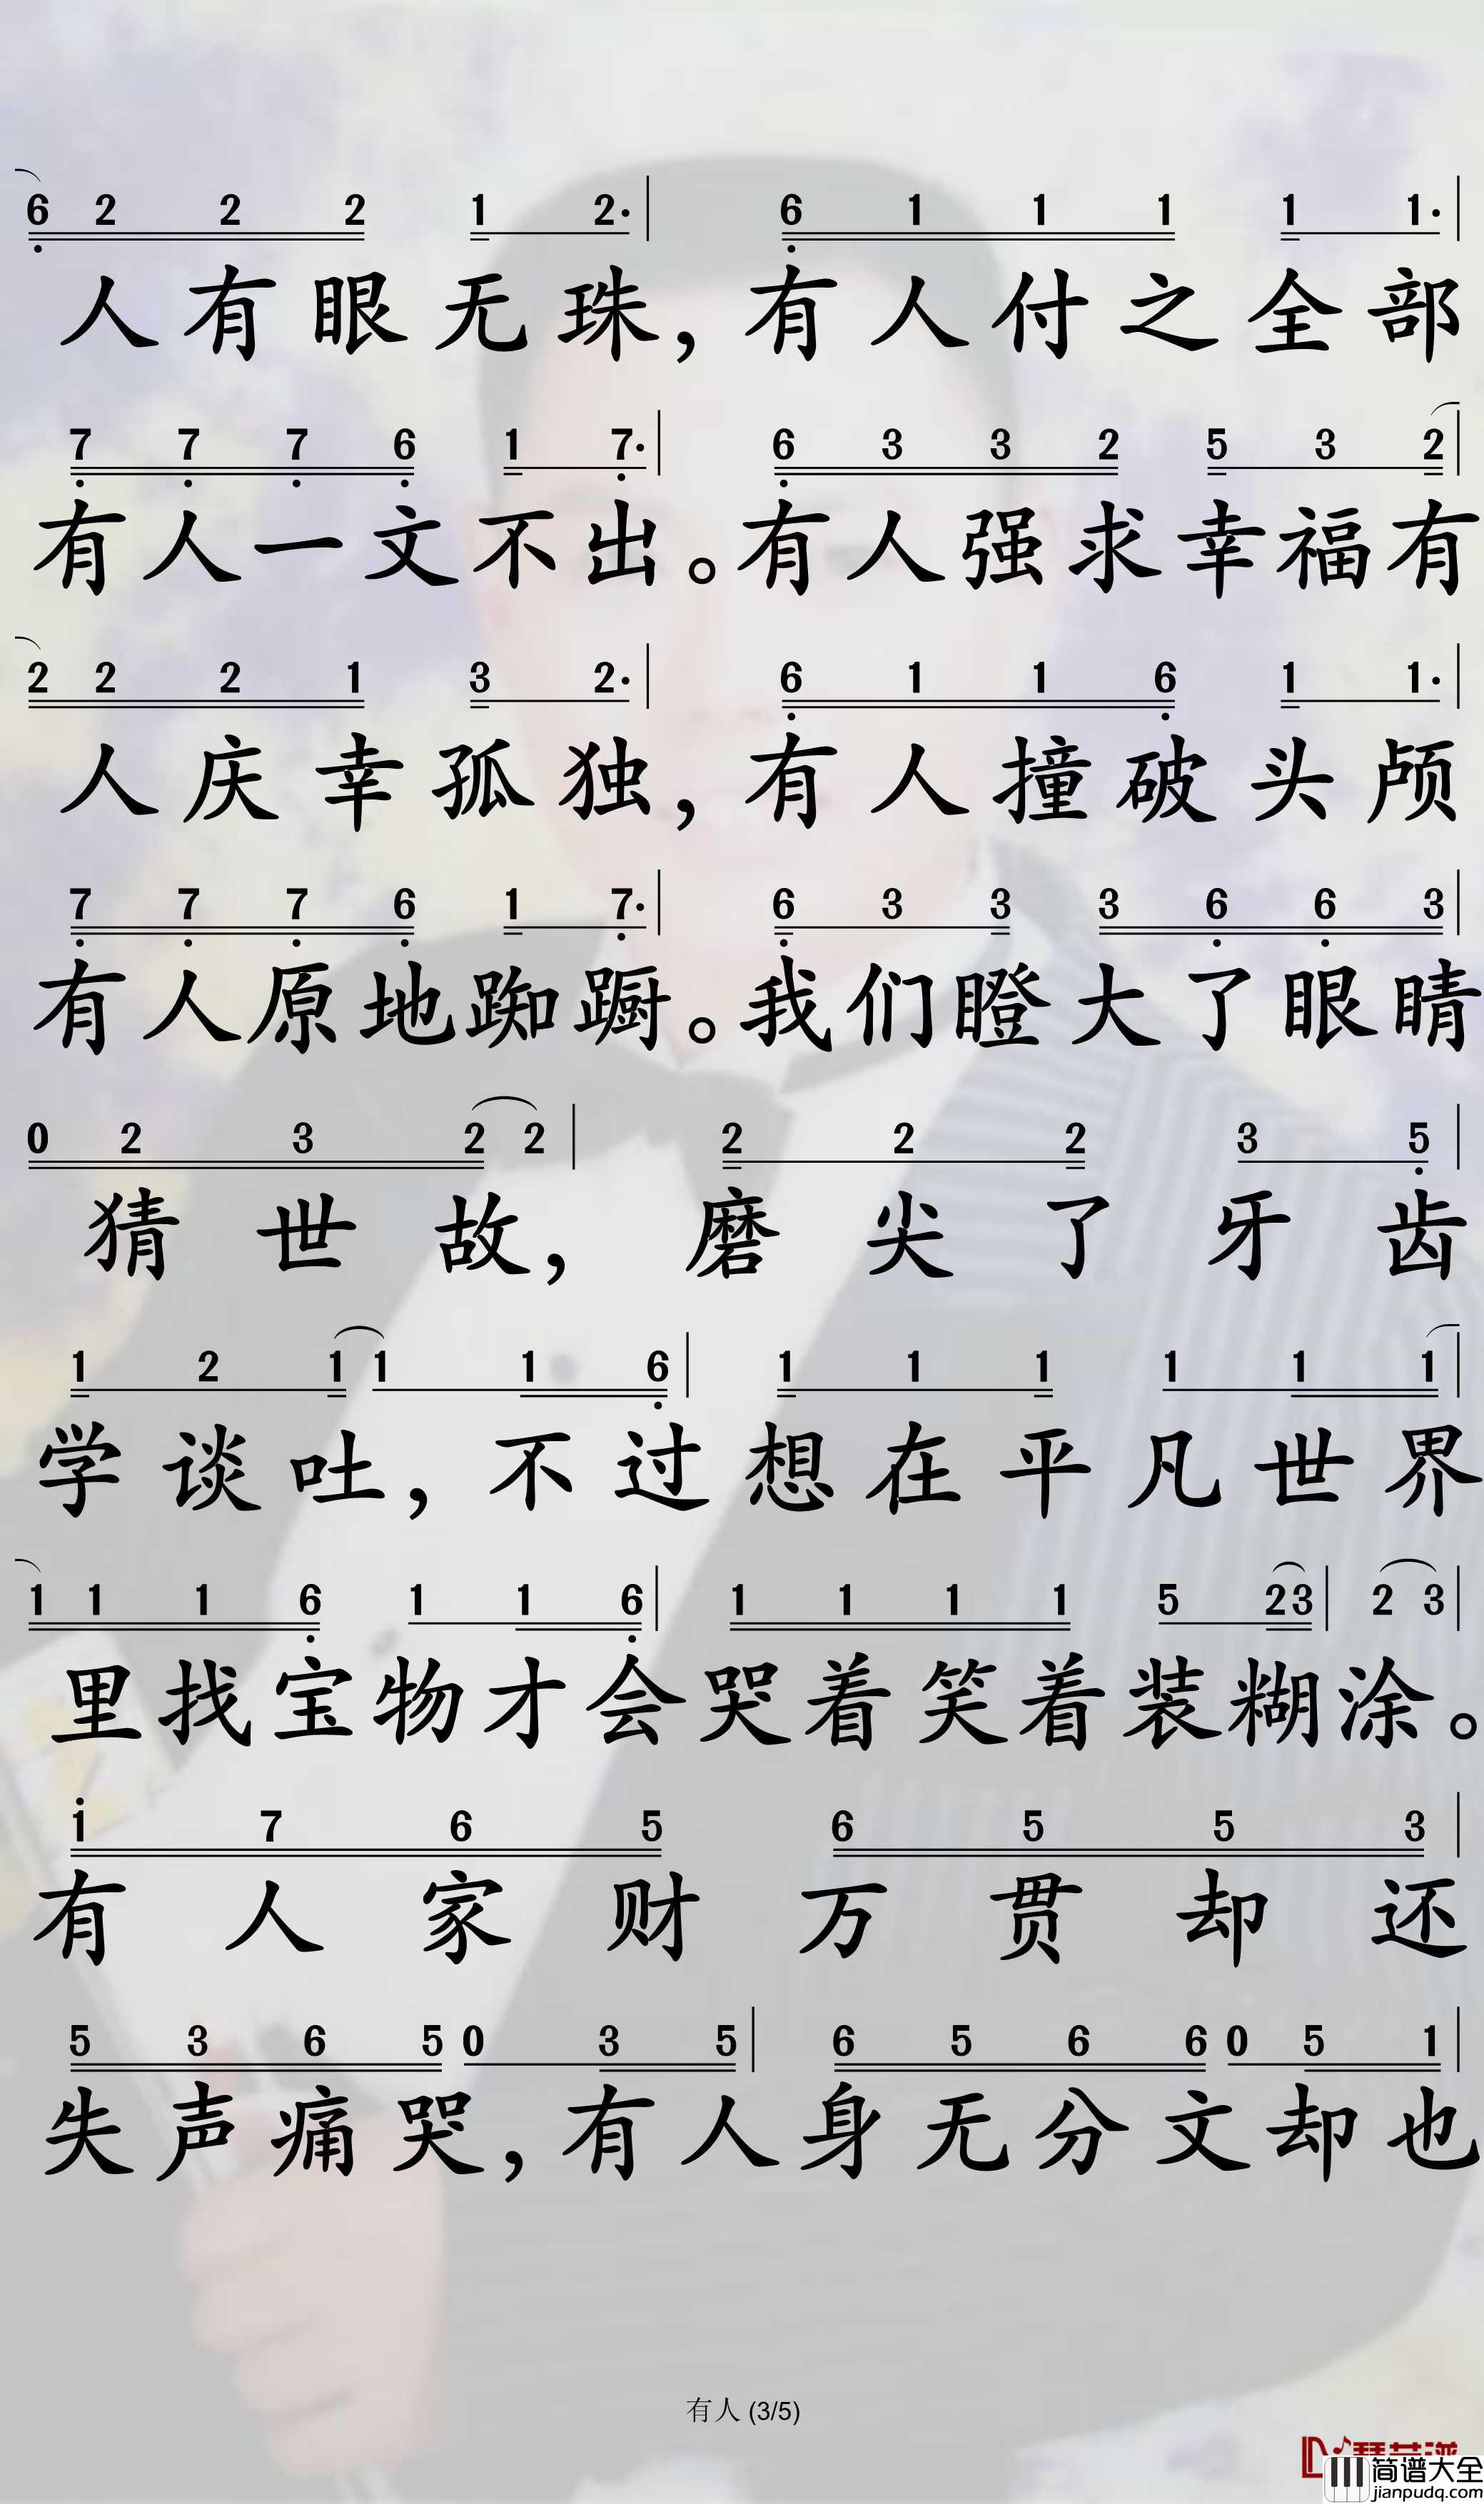 6 2 2 2 1 2· | 6 1 1 1 1 1· |
人有眼无珠，有人付之全部
7 7 7 6 1 7· | 6 3 3 2 5 3 2 |
有人一文不出。有人强求幸福有
2 2 2 1 3 2· | 6 1 1 6 1 1· |
人庆幸孤独，有人撞破头颅
7 7 7 6 1 7· | 6 3 3 3 6 6 3 |
有人原地踟蹰。我们瞪大了眼睛
0 2 3 2 2 | 2 2 2 3 5 |
猜世故，磨尖了牙齿
1 2 1 1 1 6 | 1 1 1 1 1 1 |
学谈吐，不过想在平凡世界
1 1 1 6 1 1 6 | 1 1 1 1 5 2 3 | 2 3 |
里找宝物才会哭着笑着装糊涂。
1 7 6 5 6 5 5 3 |
有人家财万贯却还
5 3 6 5 0 3 5 | 6 5 6 6 0 5 1 |
失声痛哭，有人身无分文却也
有人 (3/5)
简谱大全
jianpudq.com